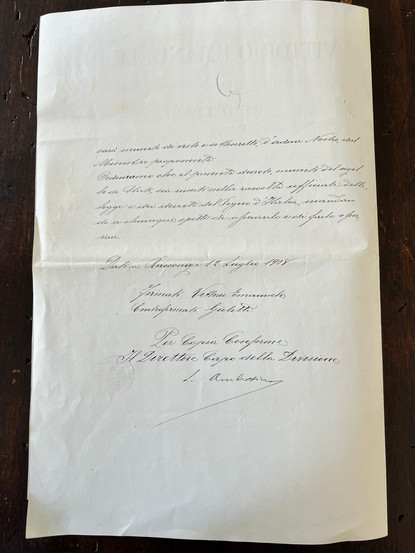 sarà munito de visto e autheretto d'ordine Nostro, dal
Ministro proponente.
Ordiniamo che il presente decreto, munito del sigil
lo dello Stato, sia inserto nella raccolta ufficiale delle
leggi e dei decreti del Regno d'Italia, mandan
do a chiunque spetti di osservarlo e di farlo osser
vare.
Dato a Racconigi 12 Luglio 1908
Firmato Vittorio Emanuele
Controfirmato Giolitti
Per Copia Conforme
Il Direttore Capo della Divisione